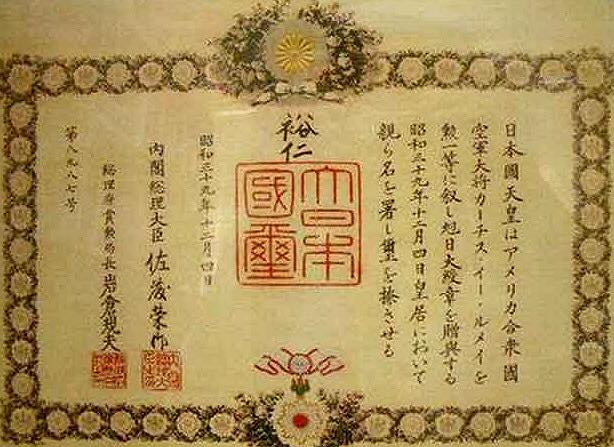 日本國天皇はアメリカ合衆國
空軍大将カーチス・イー・ルメイを
勲一等に叙し旭日大綬章を贈與する
昭和三十九年十二月四日皇居において
親ら名を署し璽を捺させる
裕仁
大日本
國璽
昭和三十九年十二月四日
内閣総理大臣 佐藤栄作
総理府賞勲局長 岩倉規夫
第八九八七号